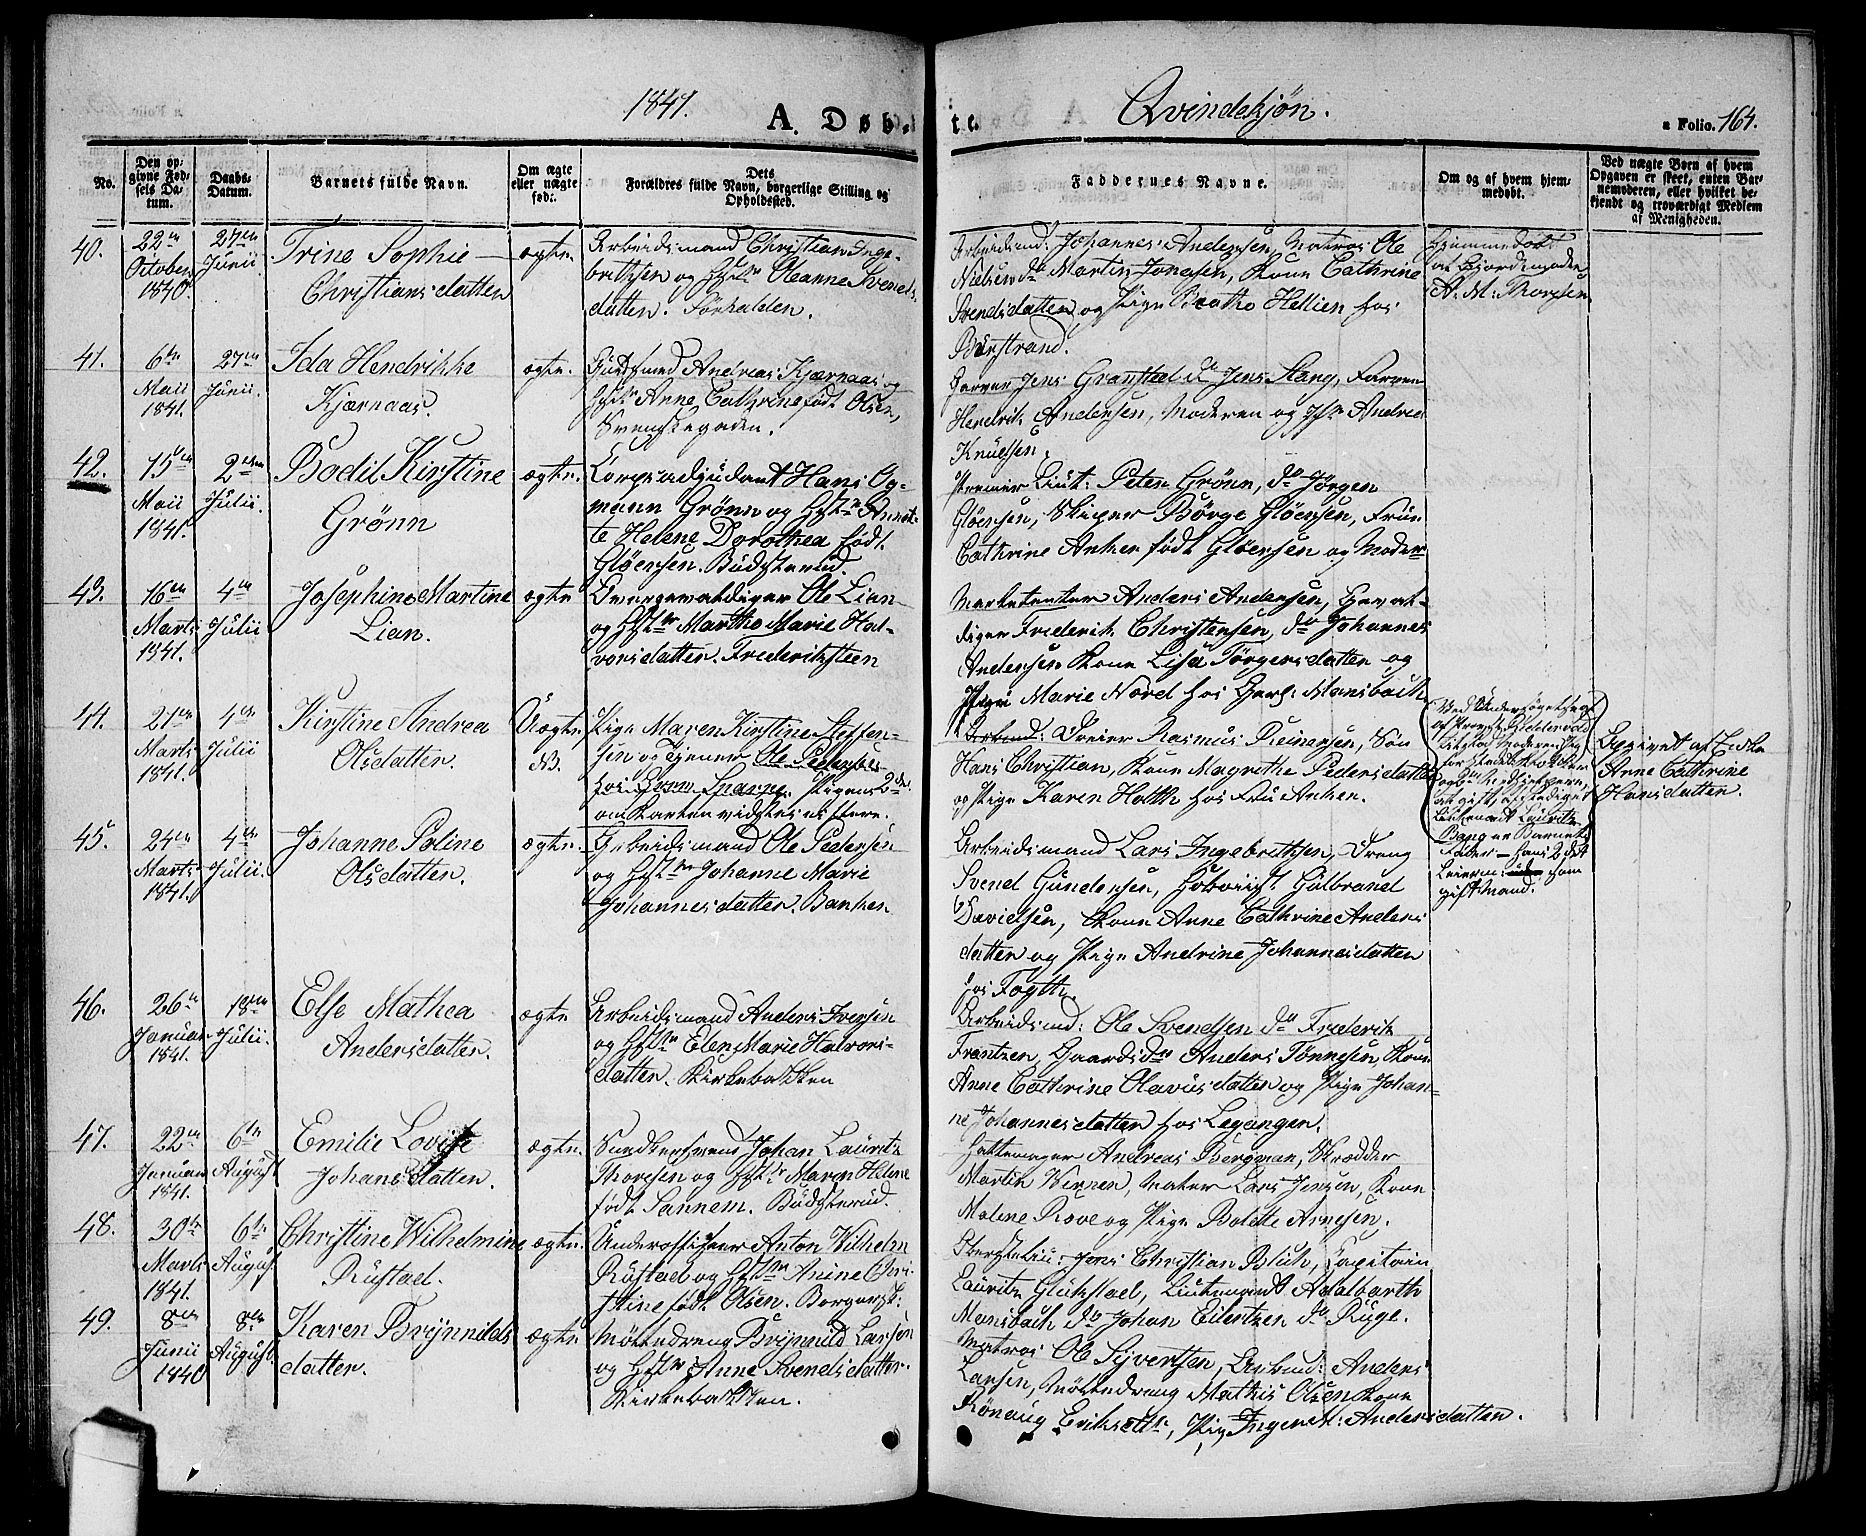 1841.
A. Døb-
te.
Qvindekjøn.
a Folio. 164.
No.
Den op-
givne Fød-
sels Da-
tum.
Daabs-
Datum.
Barnets fulde Navn.
Om ægte
eller uægte
født.
Dets
Forældres fulde Navn, borgerlige Stilling og
Opholdssted.
Faddernes Navne.
Om og af hvem hjem-
medøbt.
Ved uægte Børn af hvem
Opgaven er skeet, enten Bar-
nemoderen, eller hvilket be-
kjendt og troværdigt Medlem
af Menigheden.
40.
22en
October
1840.
27en
Junii
Trine Sophie
Christiansdatter
ægte.
Arbeidsmand Christian Inge-
brethsen og Hstr Oleanne Svends
datter. Sørhalden.
Arbeidsmd: Johannes Andersen, Matros Ole
Nielsen do Martin Jonasen, Kone Cathrine
Svendsdatter og Pige Beathe Hellien hos
Buestrand.
Hjemmedøbt
af Gjordemoder
A. M. Thorsen
41.
6te
Maii
1841.
27en
Junii.
Ida Hendrikke
Kjærnaas.
ægte.
Guldsmed Andreas Kjærnaas og
Hstr Anne Cathrine født Olsen,
Svenskegaden.
Garver Jens do Jens Stang, Farver
Hendrik Andersen, Moderen og Andrea
Knudsen.
42.
15en
Maii
1841.
2den
Julii.
Bodil Kirstine
Grønn
ægte.
Corpsadjudant Hans Og-
mann Grønn og Hstr Annet-
te Helene Dorothea født
Gløersen. Budsterud.
Premier Lieut: Peter Grønn, do Jørgen
Gløersen, Skiper Børge Gløersen, Frue
Cathrine Anker født Gløersen og Moder
43.
16en
Marts
1841.
4en
Julii
Josephine Martine
Lian.
ægte
Ole Lian
og Hstr Marthe Marie Hal-
vorsdatter. Frederiksteen
Marketenter Anders Andersen, Geval-
diger Frederik Christensen, do Johannes
Andersen Kone Lisa Jørgensdatter og
Pige Marie Nord hos Mansbach
44.
21en
Marts
1841.
4en
Julii
Kirstine Andrea
Olsdatter.
Uægte,
NB.
Pige Maren Kirstine Steffen-
sen og Tjener Ole Pedersen
hos. Pigens 2det
om Faderen vidstes ei flere.
Dreier Rasmus Reinersen, Søn
Hans Christian, Kone Magrethe Pedersdatter
og Pige Karen Hotth hos Fru Anker.
Ved
af
Moderen
for
at gift
Lieutenant Lauritz
Bang er Barnets
Fader – Hans 2det
Leierm: som
gift Mand.
Opgivet af Enke
Anne Cathrine
Hansdatter.
45.
24en
Marts
1841.
4en
Julii.
Johanne Poline
Olsdatter.
ægte.
Arbeidsmand Ole Pedersen
og Hstr Johanne Marie
Johannesdatter. Banken
Arbeidsmand Lars Ingebrethsen, Dreng
Svend Gundersen, Gulbrand
Davidsen, Kone Anne Cathrine Anders
datter og Pige Andrine Johannesdatter
hos Fogth.
46.
26en
Januar
1841.
18en
Julii.
Else Mathea
Andersdatter.
ægte
Arbeidsmand Anders Iversen
og Hstr Elen Marie Halvors-
datter. Kirkebakken
Arbeidsmd: Ole Svendsen do Frederik
Frantzen, Gaardsdr Anders Tønnesen, Kone
Anne Cathrine Olavusdatter og Pige Johan-
ne Johannesdatter hos Legangen.
47.
22en
Januar
1841.
6te
August
Emilie Lovise
Johansdatter.
ægte.
Johan Lauritz
Thoresen og Hstr Maren Helene
født Sannem. Budsterud.
Hattemager Andreas Bergman, Skrædder
Martin Maler Lars Jensen, Kone
Malene Rove og Pige Bolette Arnesen.
48.
30te
Marts
1841.
6te
August
Christine Wilhelmine
Rustad.
ægte.
Underofficeer Anton Wilhelm
Rustad og Hstr Anine Chri-
stine født Olsen. Borgergt.
Jens Christian Bluk, Capitain
Lauritz Glückstad, Lieutenant Adalbarth
Mansbach do Johan Eilertzen do Ruge.
49.
8en
Junii
1840
8en
August.
Karen Brynnilds
datter.
ægte
Mølledreng Brynnild Larsen
og Hstr Anne Svendsdatter.
Kirkebakken.
Matros Ole Syvertsen, Arbmd: Anders
Larsen, Mølledreng Mathis Olsen Kone
Rønaug Eriksdtr, Pige Ingerth Andersdatter.